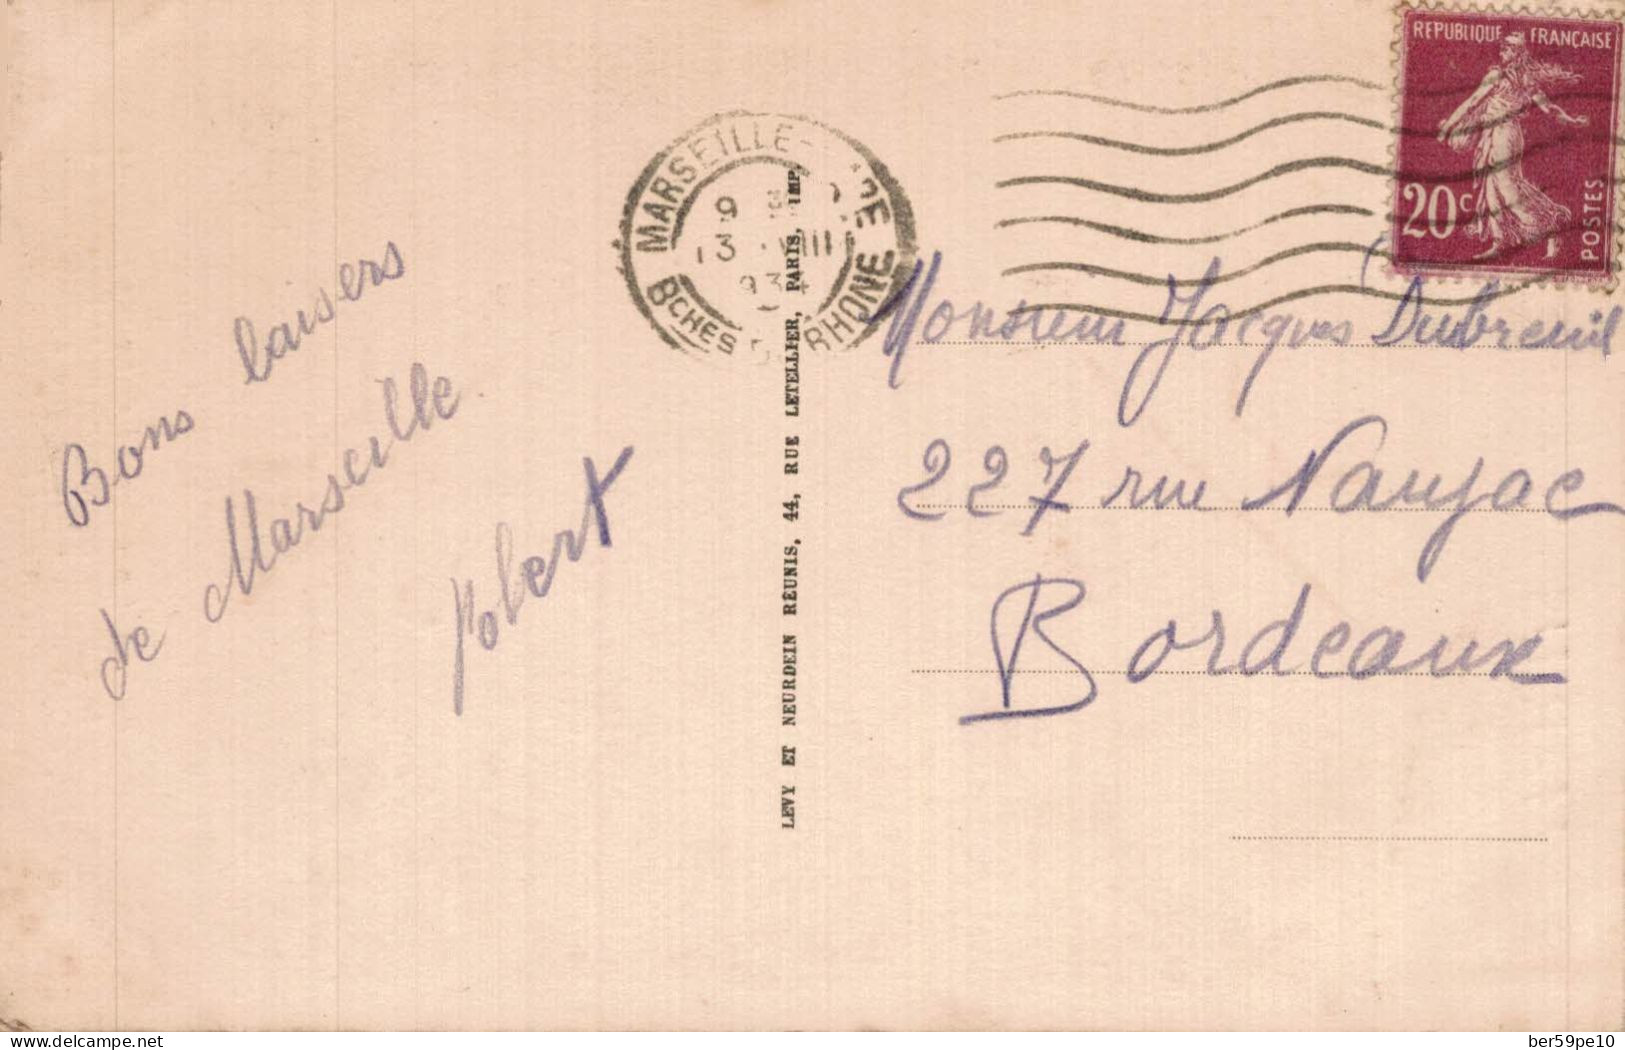 Bons baisers
de Marseille
Robert
MARSEILLE-GARE
BCHES DU RHONE
13 VIII
LEVY ET NEURDEIN RÉUNIS, 44, RUE LETELLIER, PARIS, IMP.
REPUBLIQUE FRANÇAISE
20c
POSTES
Monsieur Jacques Dubreuil
227 rue Naujac
Bordeaux
delcampe.net
ber59pe10